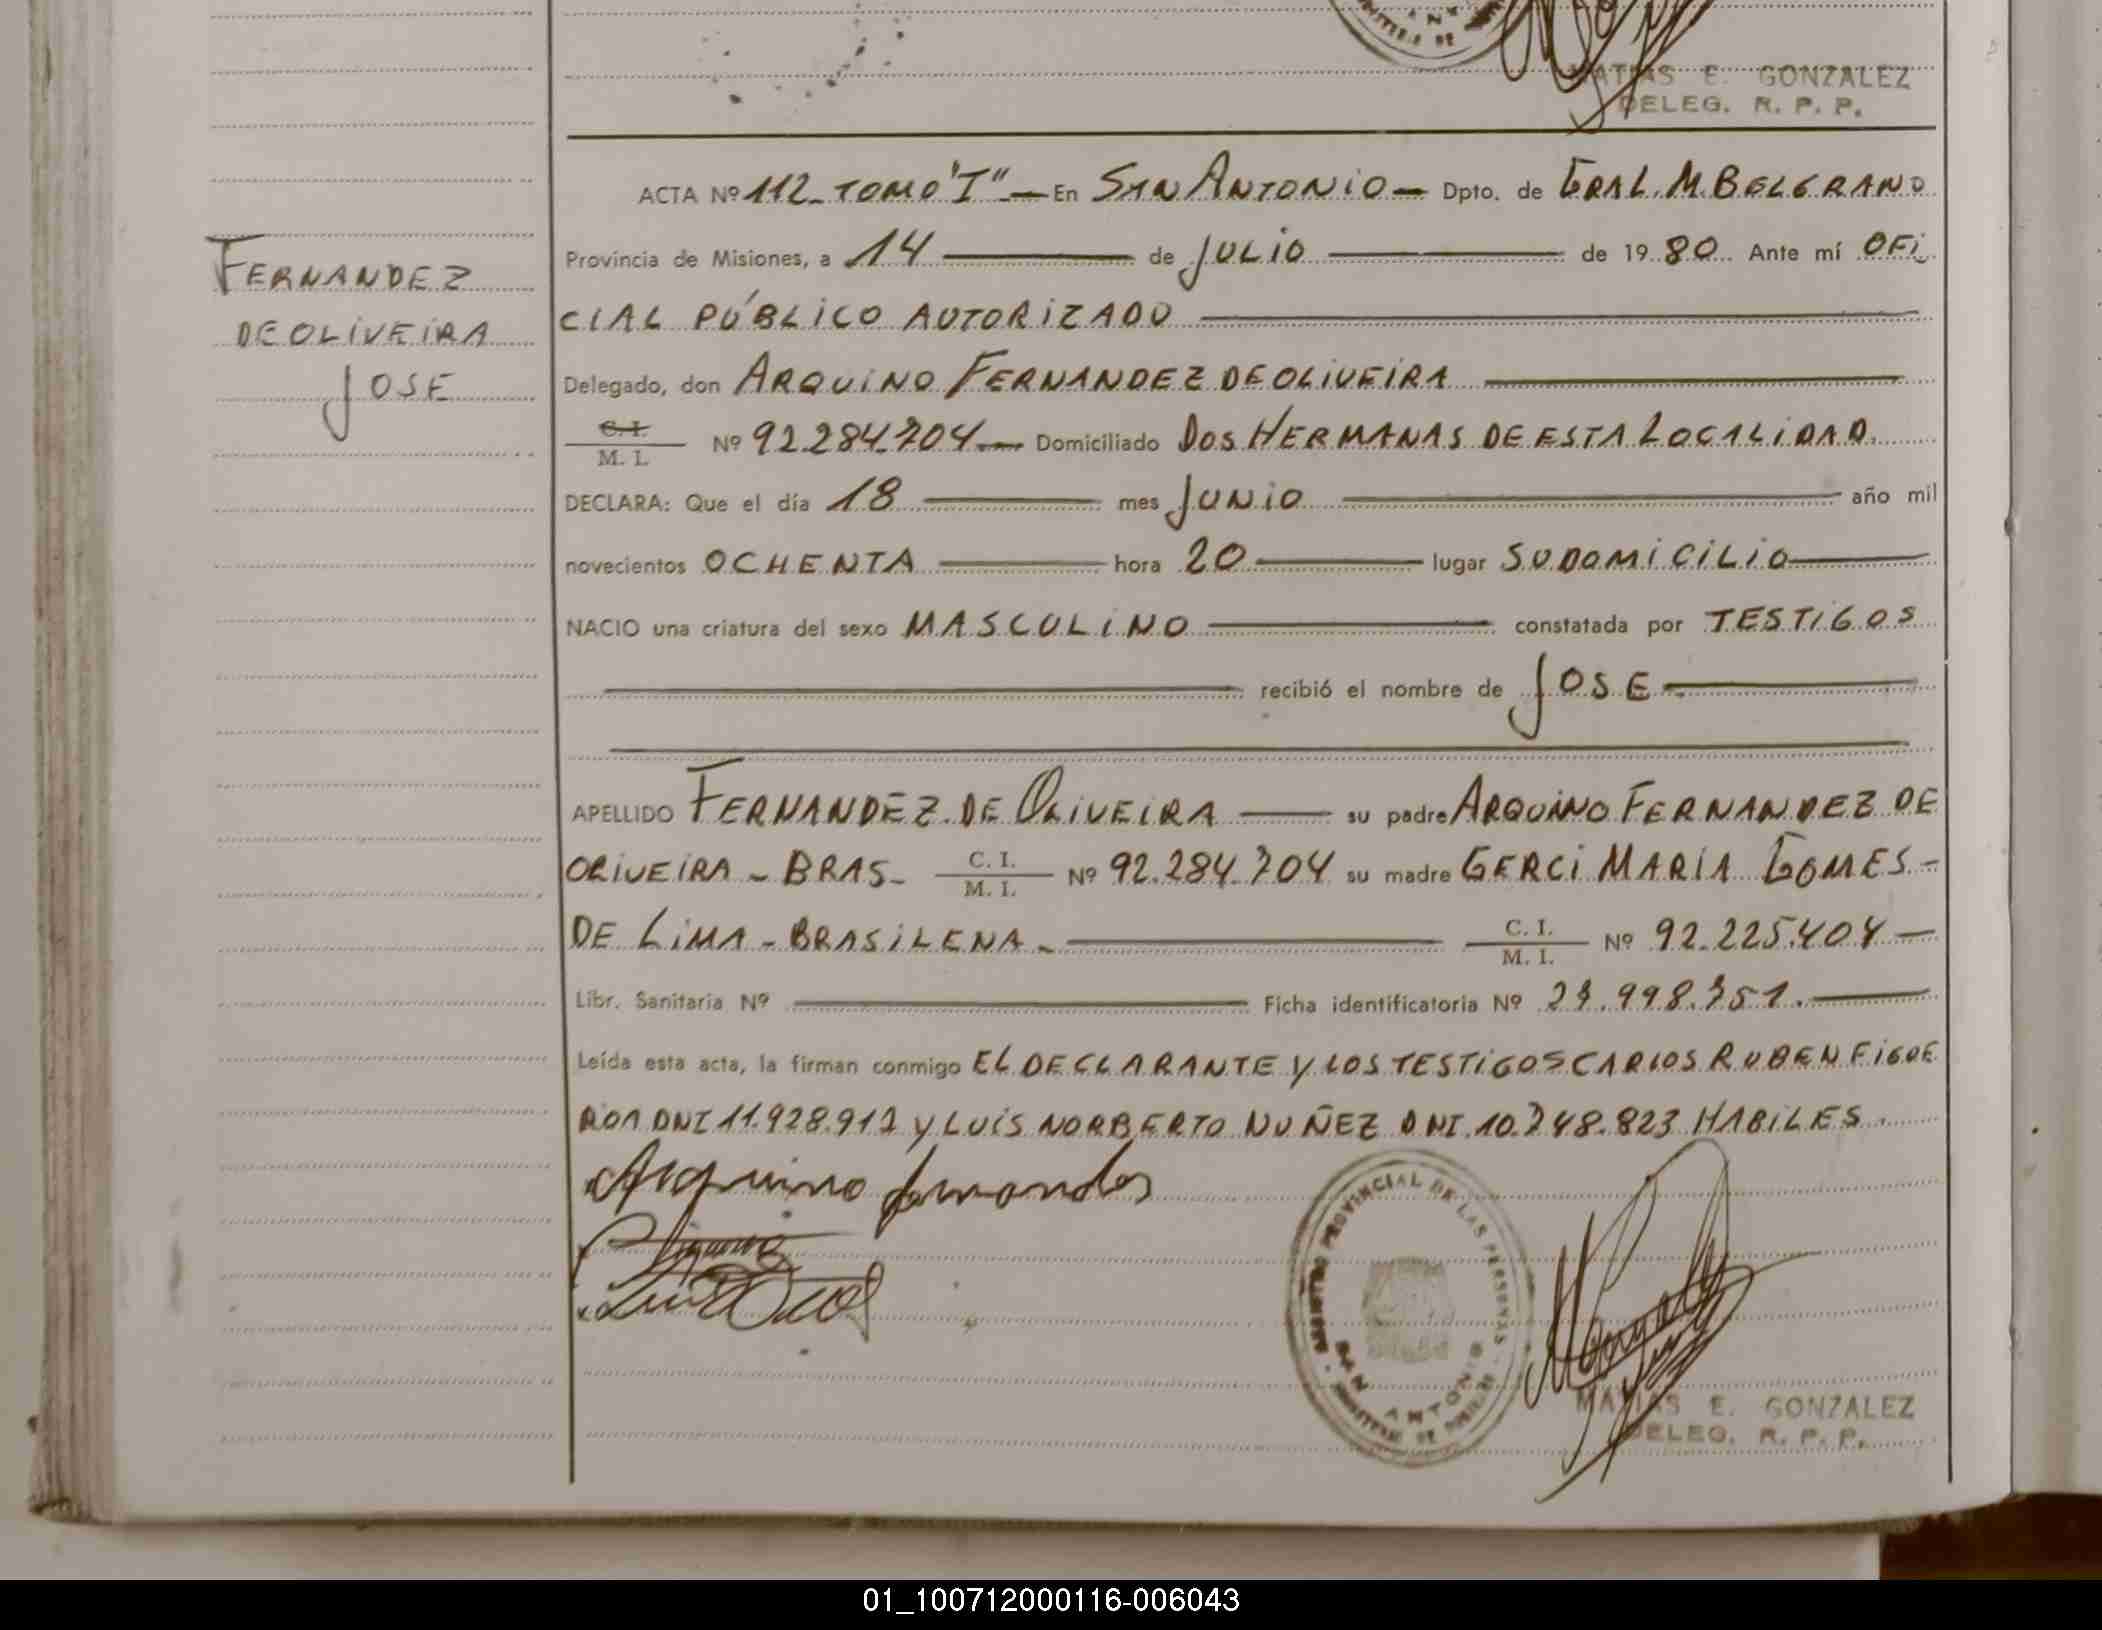 MATIAS E. GONZALEZ
DELEG. R. P. P.
ACTA Nº 112 - TOMO "I" - En SAN ANTONIO - Dpto. de GRAL. M. BELGRANO
Provincia de Misiones, a 14 de JULIO de 19 80. Ante mí OFI
CIAL PÚBLICO AUTORIZADO
Delegado, don ARQUINO FERNANDEZ DE OLIVEIRA
C. I. M. I. Nº 92.284.704 - Domiciliado DOS HERMANAS DE ESTA LOCALIDAD.
DECLARA: Que el día 18 mes JUNIO año mil
novecientos OCHENTA hora 20 lugar SU DOMICILIO
NACIO una criatura del sexo MASCULINO constatada por TESTIGOS
recibió el nombre de JOSE
APELLIDO FERNANDEZ DE OLIVEIRA su padre ARQUINO FERNANDEZ DE
OLIVEIRA - BRAS - C. I. M. I. Nº 92.284.704 su madre GERCI MARIA GOMES -
DE LIMA - BRASILENA - C. I. M. I. Nº 92.225.404 -
Libr. Sanitaria Nº Ficha identificatoria Nº
Leída esta acta, la firman conmigo EL DECLARANTE Y LOS TESTIGOS CARLOS RUBEN FIGUE
ROA DNI 11.928.917 Y LUIS NORBERTO NUÑEZ DNI. 10.748.823 HABILES.
FERNANDEZ
DE OLIVEIRA
JOSE
Arquino fernandes
REGISTRO PROVINCIAL DE LAS PERSONAS
SAN ANTONIO
MATIAS E. GONZALEZ
DELEG. R. P. P.
01_100712000116-006043